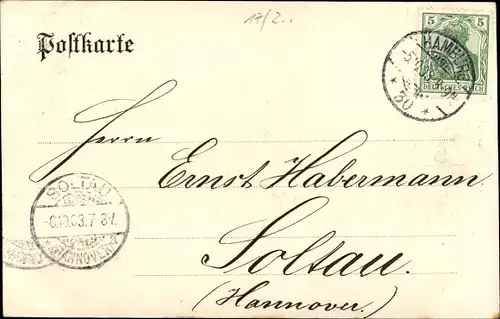 17/2..
Postkarte
5 5
DEUTSCHES REICH
HAMBURG
* 30 *
Herrn
Ernst Habermann.
SOLTAU
-6.10.03.7-8V.
Soltau.
(Hannover.)